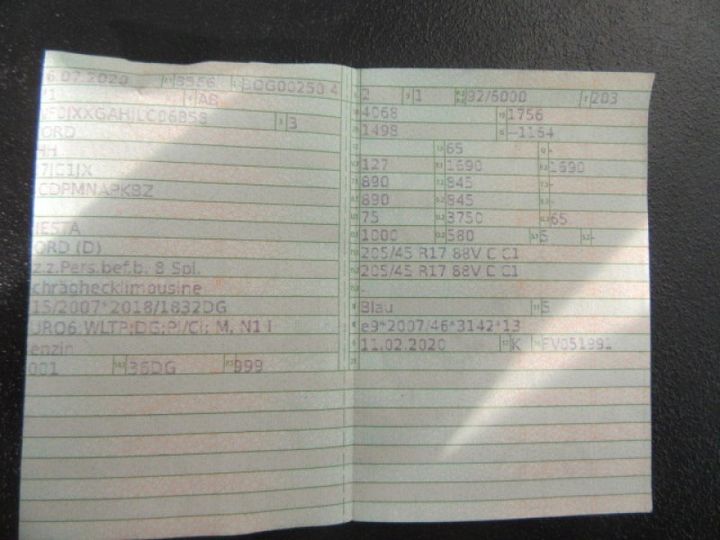 6.07.2020 8556
M1 AB
3
ORD
HH
CDPMNAPKBZ
IESTA
ORD (D)
z.z.Pers.bef.b. 8 Spl.
chräghecklimousine
15/2007*2018/1832DG
URO6;WLTP;DG;PI/CI; M, N1 I
enzin
001 36DG 999
2 1 92/6000 203
4068 1756
1498 -1154
65 -
127 1690 1690
890 845 -
890 845 -
75 3750 65
1000 580 5 -
205/45 R17 88V C C1
205/45 R17 88V C C1
-
Blau 5
e9*2007/46*3142*13
11.02.2020 K